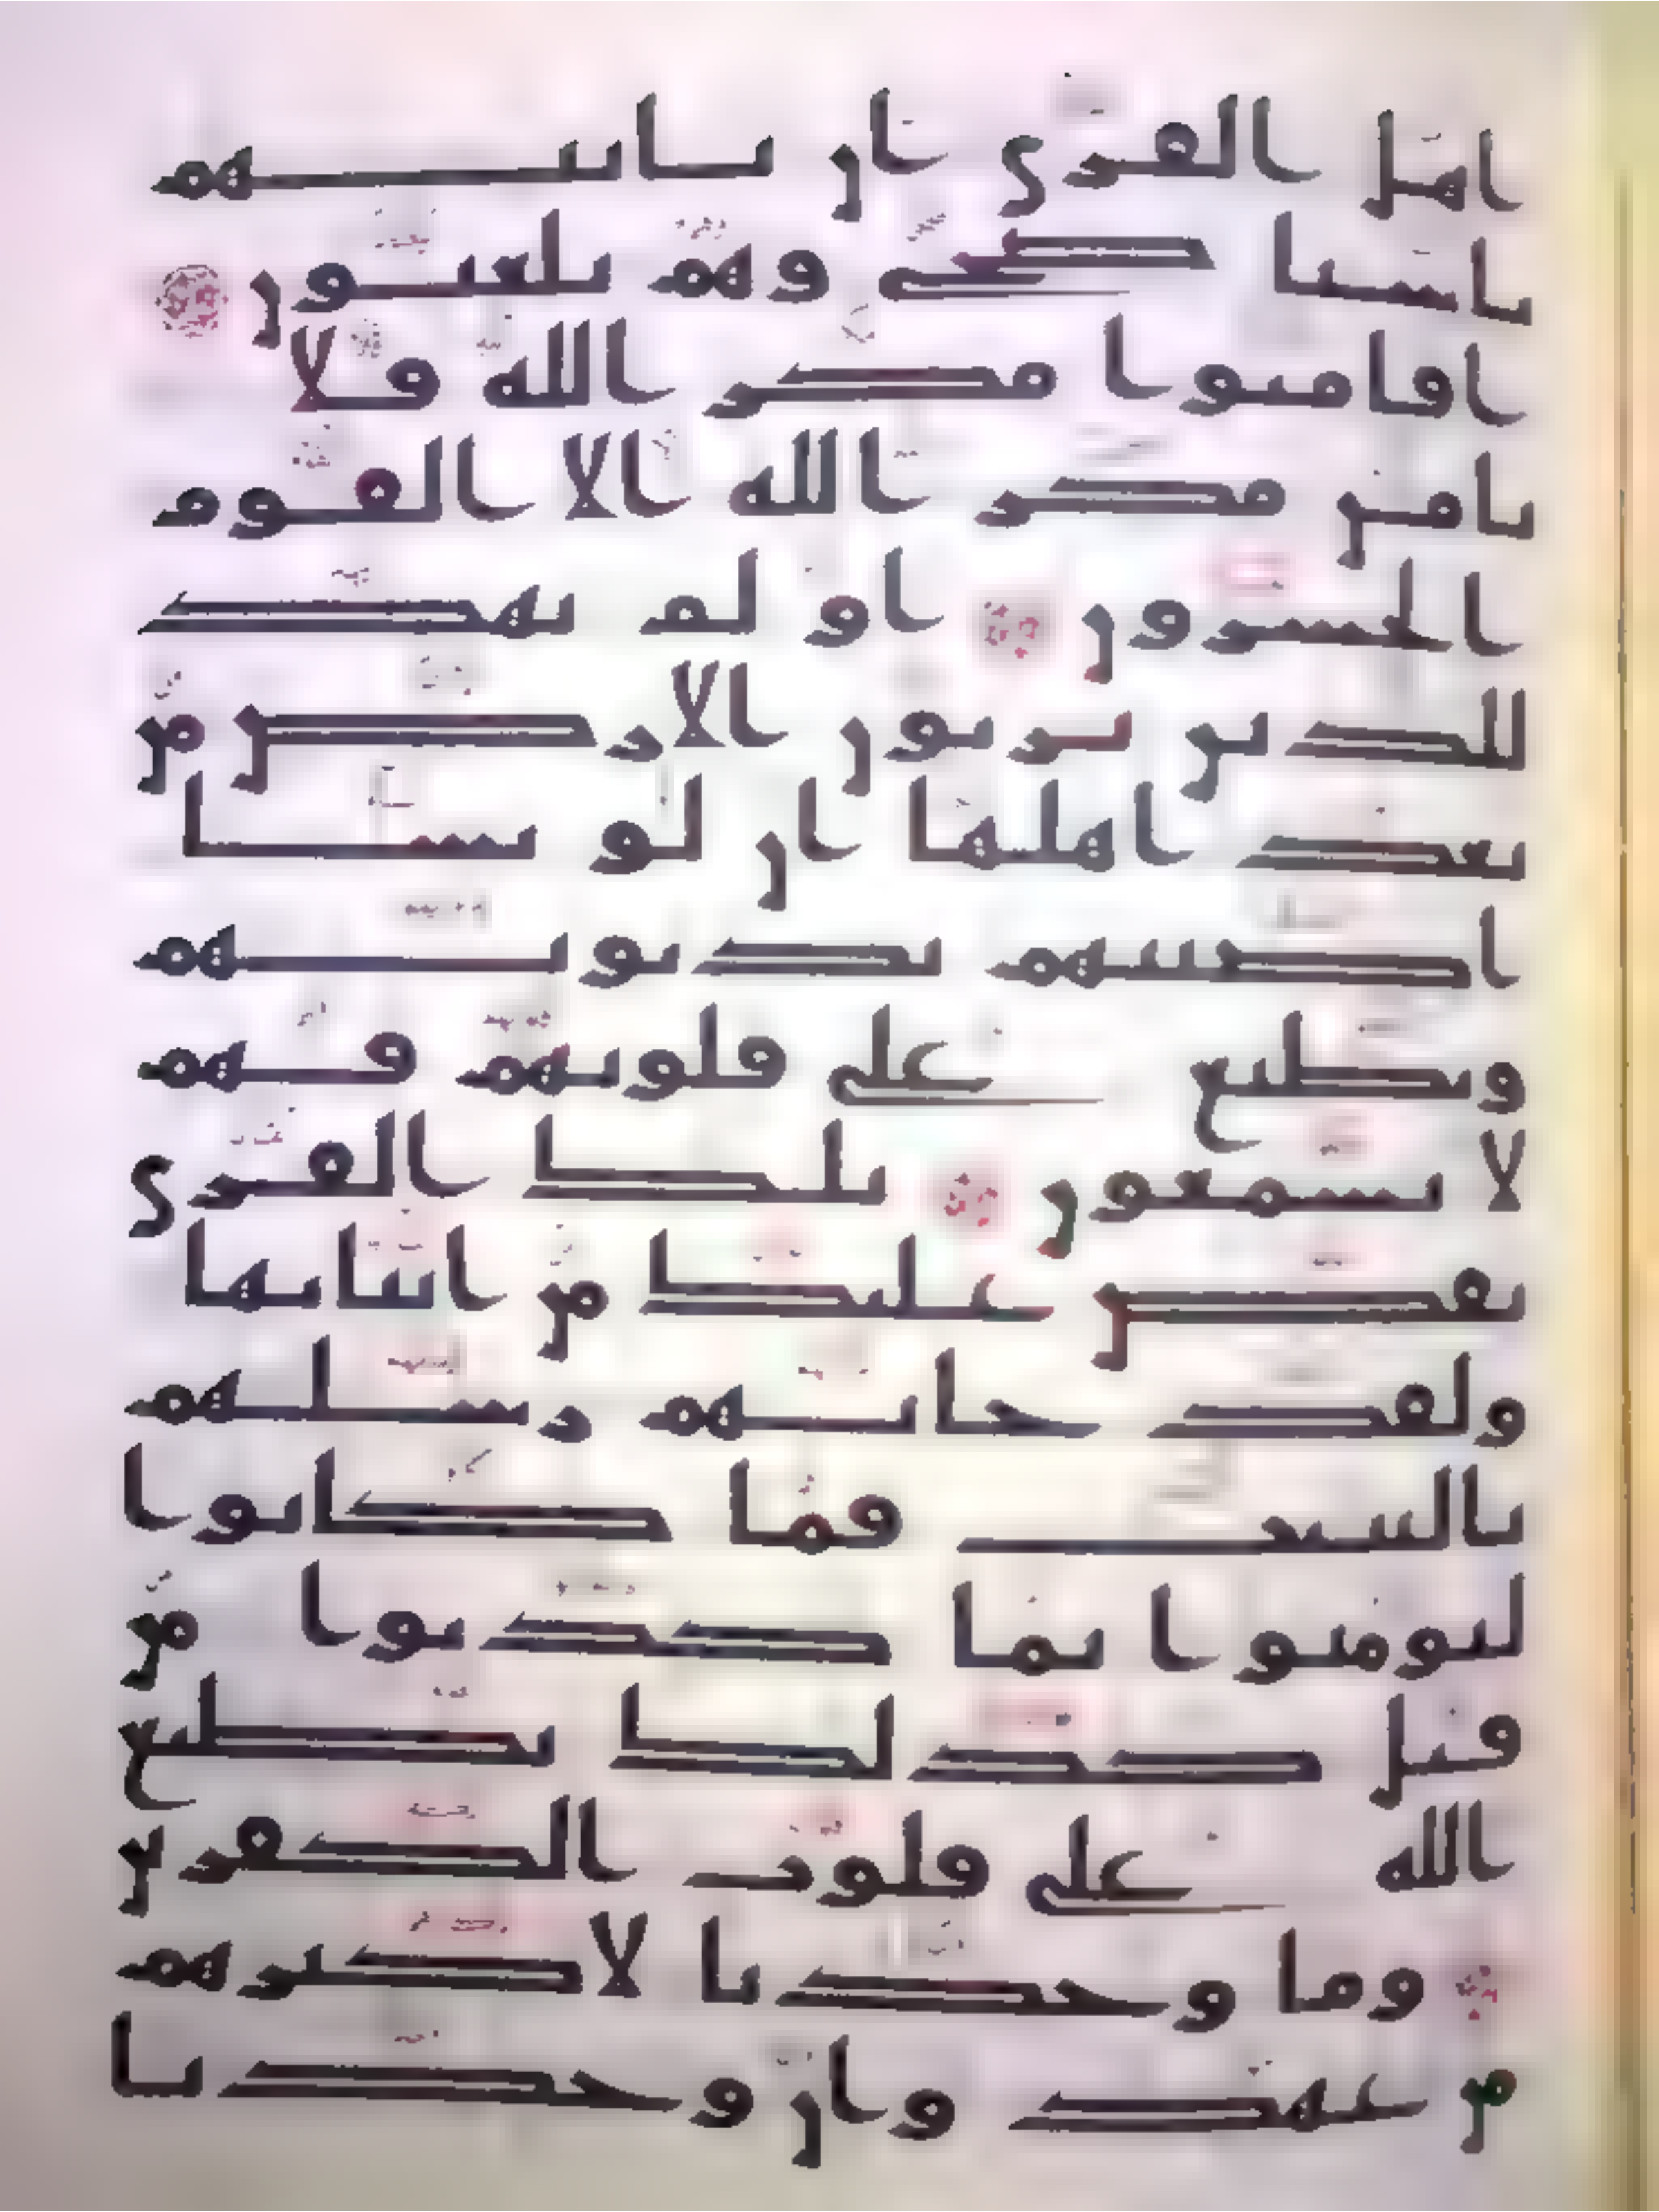 اهل القرى ان ياتيهم
باسنا ضحى وهم يلعبون
افامنوا مكر الله فلا
يامن مكر الله الا القوم
الخسرون او لم يهد
للذين يرثون الارض من
بعد اهلها ان لو نشا
اصبنهم بذنوبهم
ونطبع على قلوبهم فهم
لا يسمعون تلك القرى
نقص عليك من انبايها
ولقد جاتهم رسلهم
بالبينت فما كانوا
ليومنوا بما كذبوا من
قبل كذلك يطبع
الله على قلوب الكفرين
وما وجدنا لاكثرهم
من عهد وان وجدنا